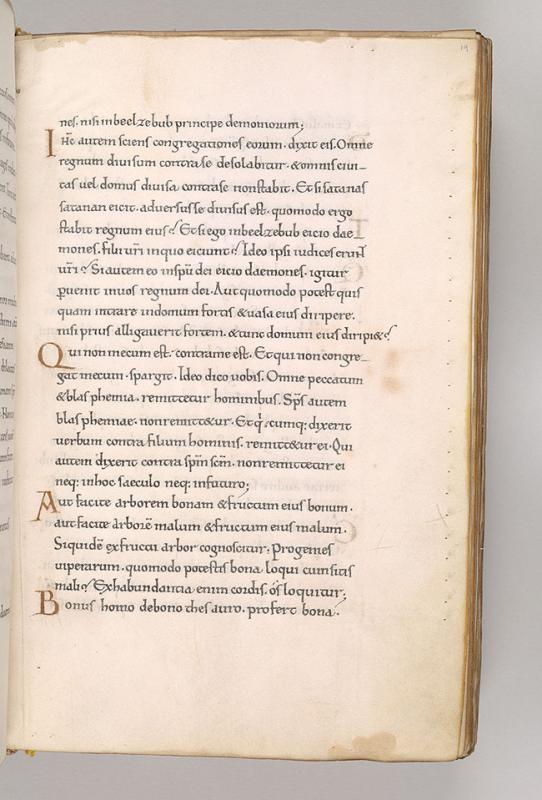 19
nes. nisi inbeelzebub principe demoniorum;
Ihs̄ autem sciens congregationes eorum. dixit eis. Omne
regnum diuisum contra se desolabitur. & omnis ciui-
tas uel domus diuisa contra se non stabit. Et si satanas
satanan eicit. aduersus se diuisus est. quomodo ergo
stabit regnum eius? Et si ego inbeelzebub eicio dae-
mones. filii ur̄i in quo eiciunt? Ideo ipsi iudices erunt
ur̄i? Si autem eo inspū dei eicio daemones. igitur
ꝑuenit in uos regnum dei. Aut quomodo potest quis
quam intrare in domum fortis & uasa eius diripere.
nisi prius alligauerit fortem. & tunc domum eius diripi&?
Qui non mecum est. contra me est. Et qui non congre-
gat mecum. spargit. Ideo dico uobis. Omne peccatum
& blasphemia. remittetur hominibus. Sp̄s autem
blasphemiae. non remitt&ur. Et q̇cumq; dixerit
uerbum contra filium hominis. remitt&ur ei. Qui
autem dixerit contra sp̄m sc̄m. non remittetur ei
neq; in hoc saeculo neq; in futuro;
Aut facite arborem bonam & fructum eius bonum.
aut facite arborē malum & fructum eius malum.
Siquidē ex fructu arbor cognoscitur. Progenies
uiperarum. quomodo potestis bona loqui cum sitis
mali? Ex habundantia enim cordis. os loquitur;
Bonus homo de bono thesauro. profert bona.